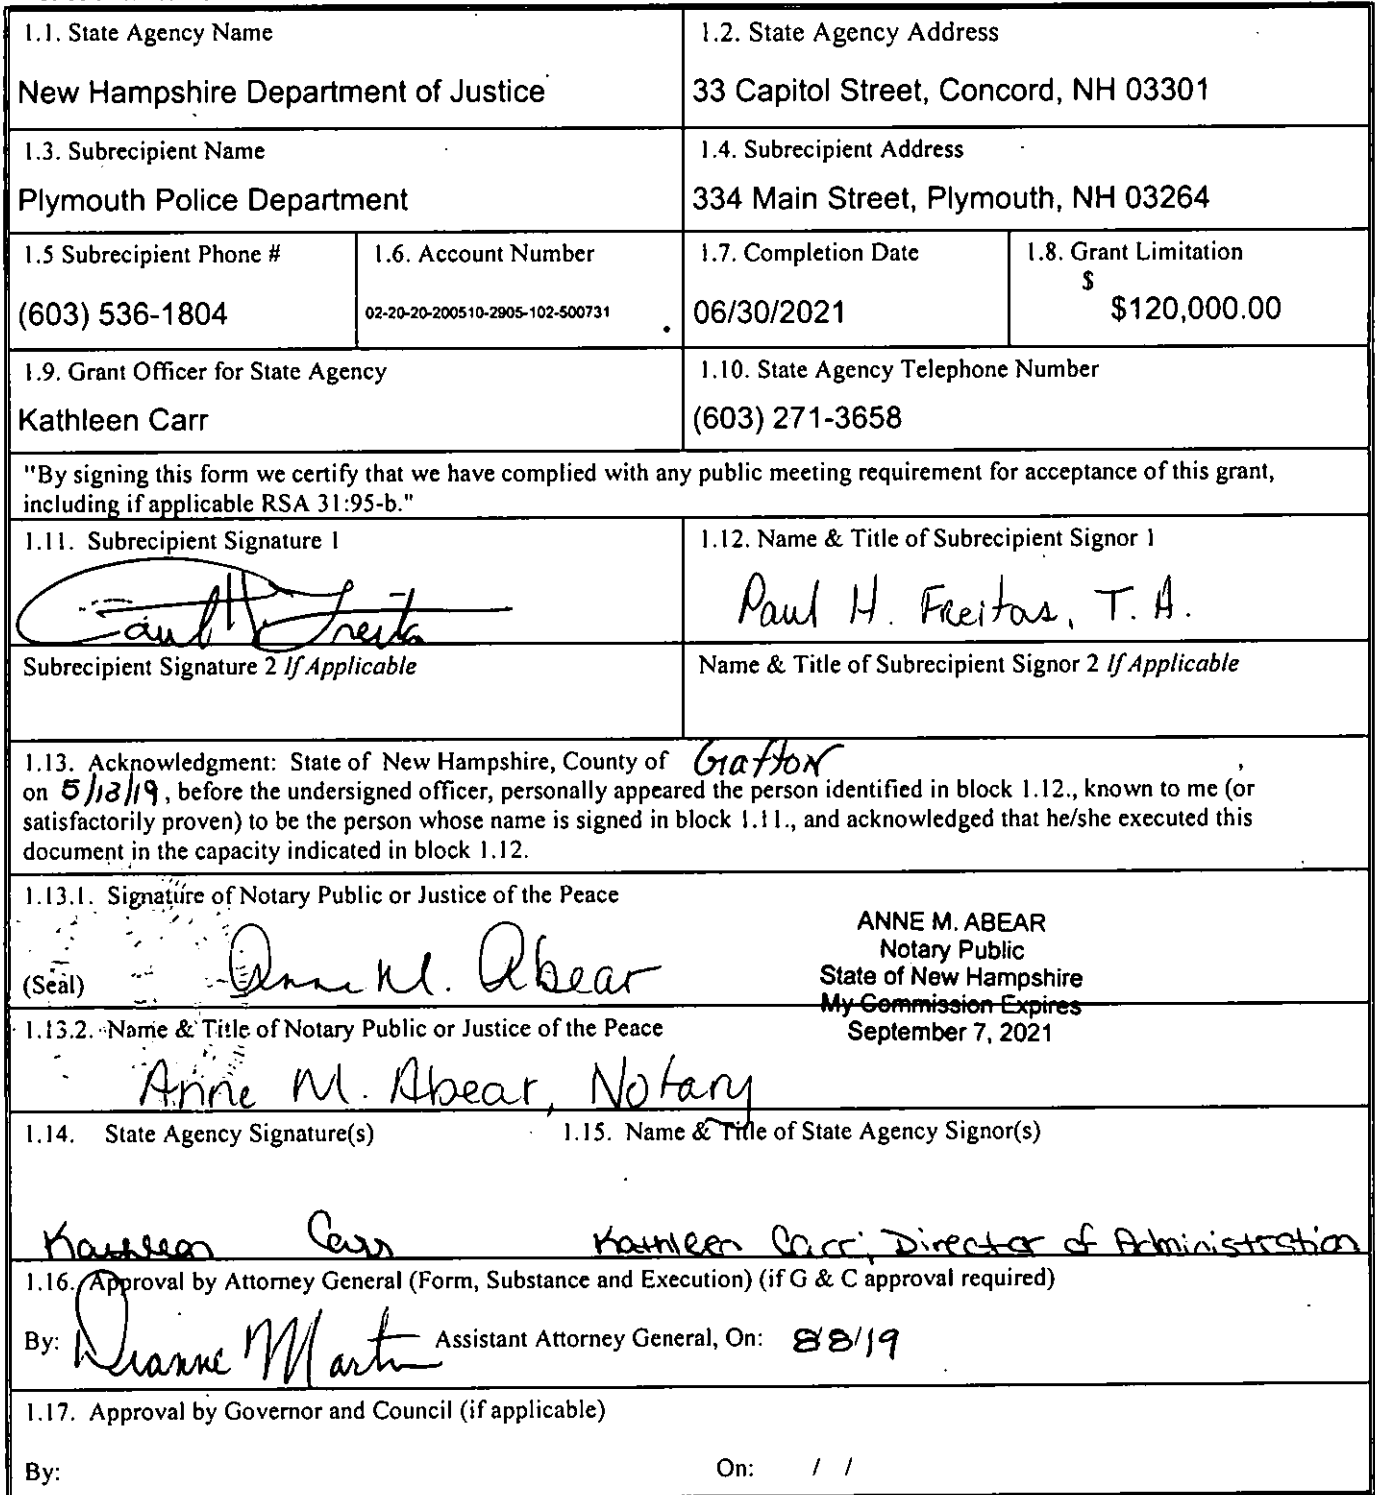 1.1. State Agency Name
New Hampshire Department of Justice
1.2. State Agency Address
33 Capitol Street, Concord, NH 03301
1.3. Subrecipient Name
Plymouth Police Department
1.4. Subrecipient Address
334 Main Street, Plymouth, NH 03264
1.5 Subrecipient Phone #
(603) 536-1804
1.6. Account Number
02-20-20-200510-2905-102-500731
1.7. Completion Date
06/30/2021
1.8. Grant Limitation
$
$120,000.00
1.9. Grant Officer for State Agency
Kathleen Carr
1.10. State Agency Telephone Number
(603) 271-3658
"By signing this form we certify that we have complied with any public meeting requirement for acceptance of this grant,
including if applicable RSA 31:95-b."
1.11. Subrecipient Signature 1
Paul H Freitas
1.12. Name & Title of Subrecipient Signor 1
Paul H. Freitas, T.A.
Subrecipient Signature 2 If Applicable
Name & Title of Subrecipient Signor 2 If Applicable
1.13. Acknowledgment: State of New Hampshire, County of Grafton,
on 5/13/19, before the undersigned officer, personally appeared the person identified in block 1.12., known to me (or
satisfactorily proven) to be the person whose name is signed in block 1.11., and acknowledged that he/she executed this
document in the capacity indicated in block 1.12.
1.13.1. Signature of Notary Public or Justice of the Peace
(Seal) Anne M. Abear
ANNE M. ABEAR
Notary Public
State of New Hampshire
My Commission Expires
September 7, 2021
1.13.2. Name & Title of Notary Public or Justice of the Peace
Anne M. Abear, Notary
1.14. State Agency Signature(s)
1.15. Name & Title of State Agency Signor(s)
Kathleen Carr
Kathleen Carr, Director of Administration
1.16. Approval by Attorney General (Form, Substance and Execution) (if G & C approval required)
By: Dianne Martin Assistant Attorney General, On: 8/8/19
1.17. Approval by Governor and Council (if applicable)
By:
On: / /